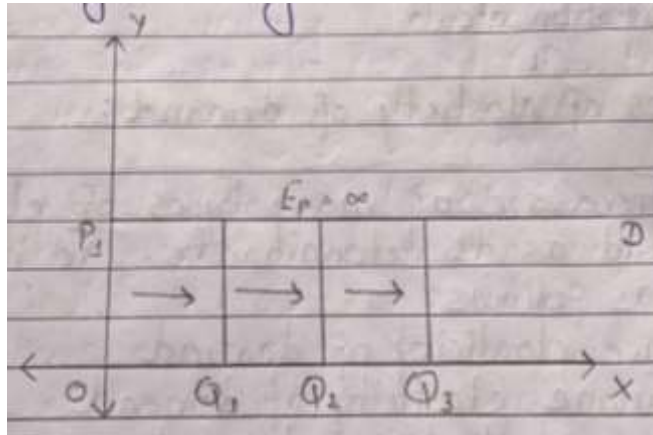 Y
Ep = ∞
P1 D
O Q1 Q2 Q3 X